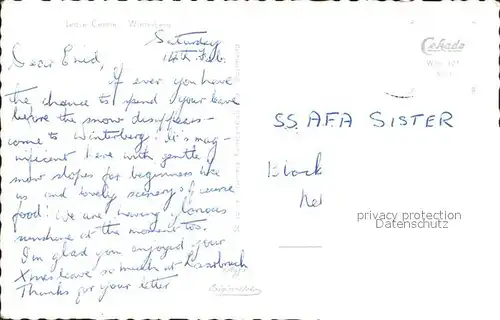 Saturday
14th Feb.
Dear Enid,
If ever you have
the chance to spend your leave
before the snow disappears -
come to Winterberg! It's mag-
nificent here with gentle
snow slopes for beginners like
us and lovely scenery & of course
food! We are having glorious
sunshine at the moment too.
I'm glad you enjoyed your
Xmas leave so much at
Thanks for your letter
Cekade
SSAFA SISTER
Block
privacy protection
Datenschutz